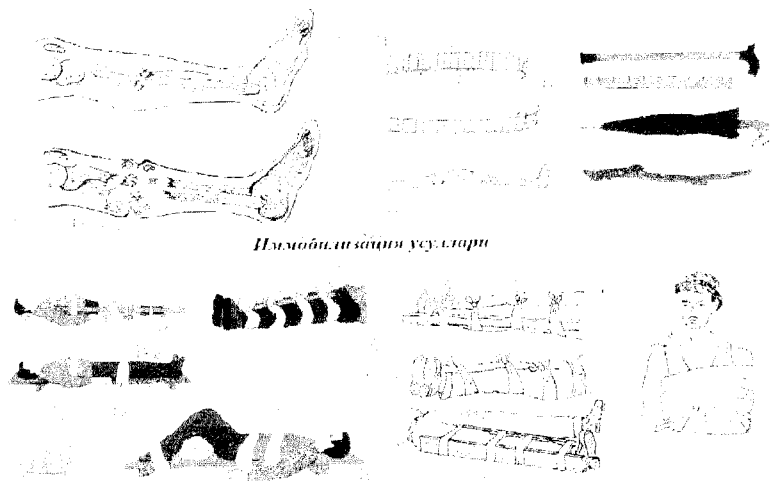 Иммобилизация усуллари